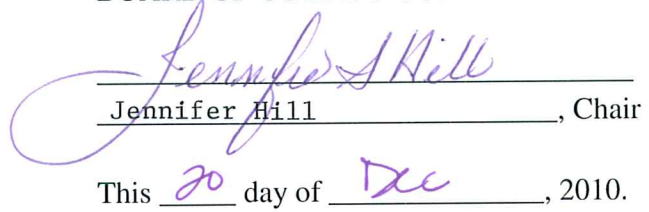 Jennifer S Hill
Jennifer Hill, Chair
This 20 day of Dec, 2010.